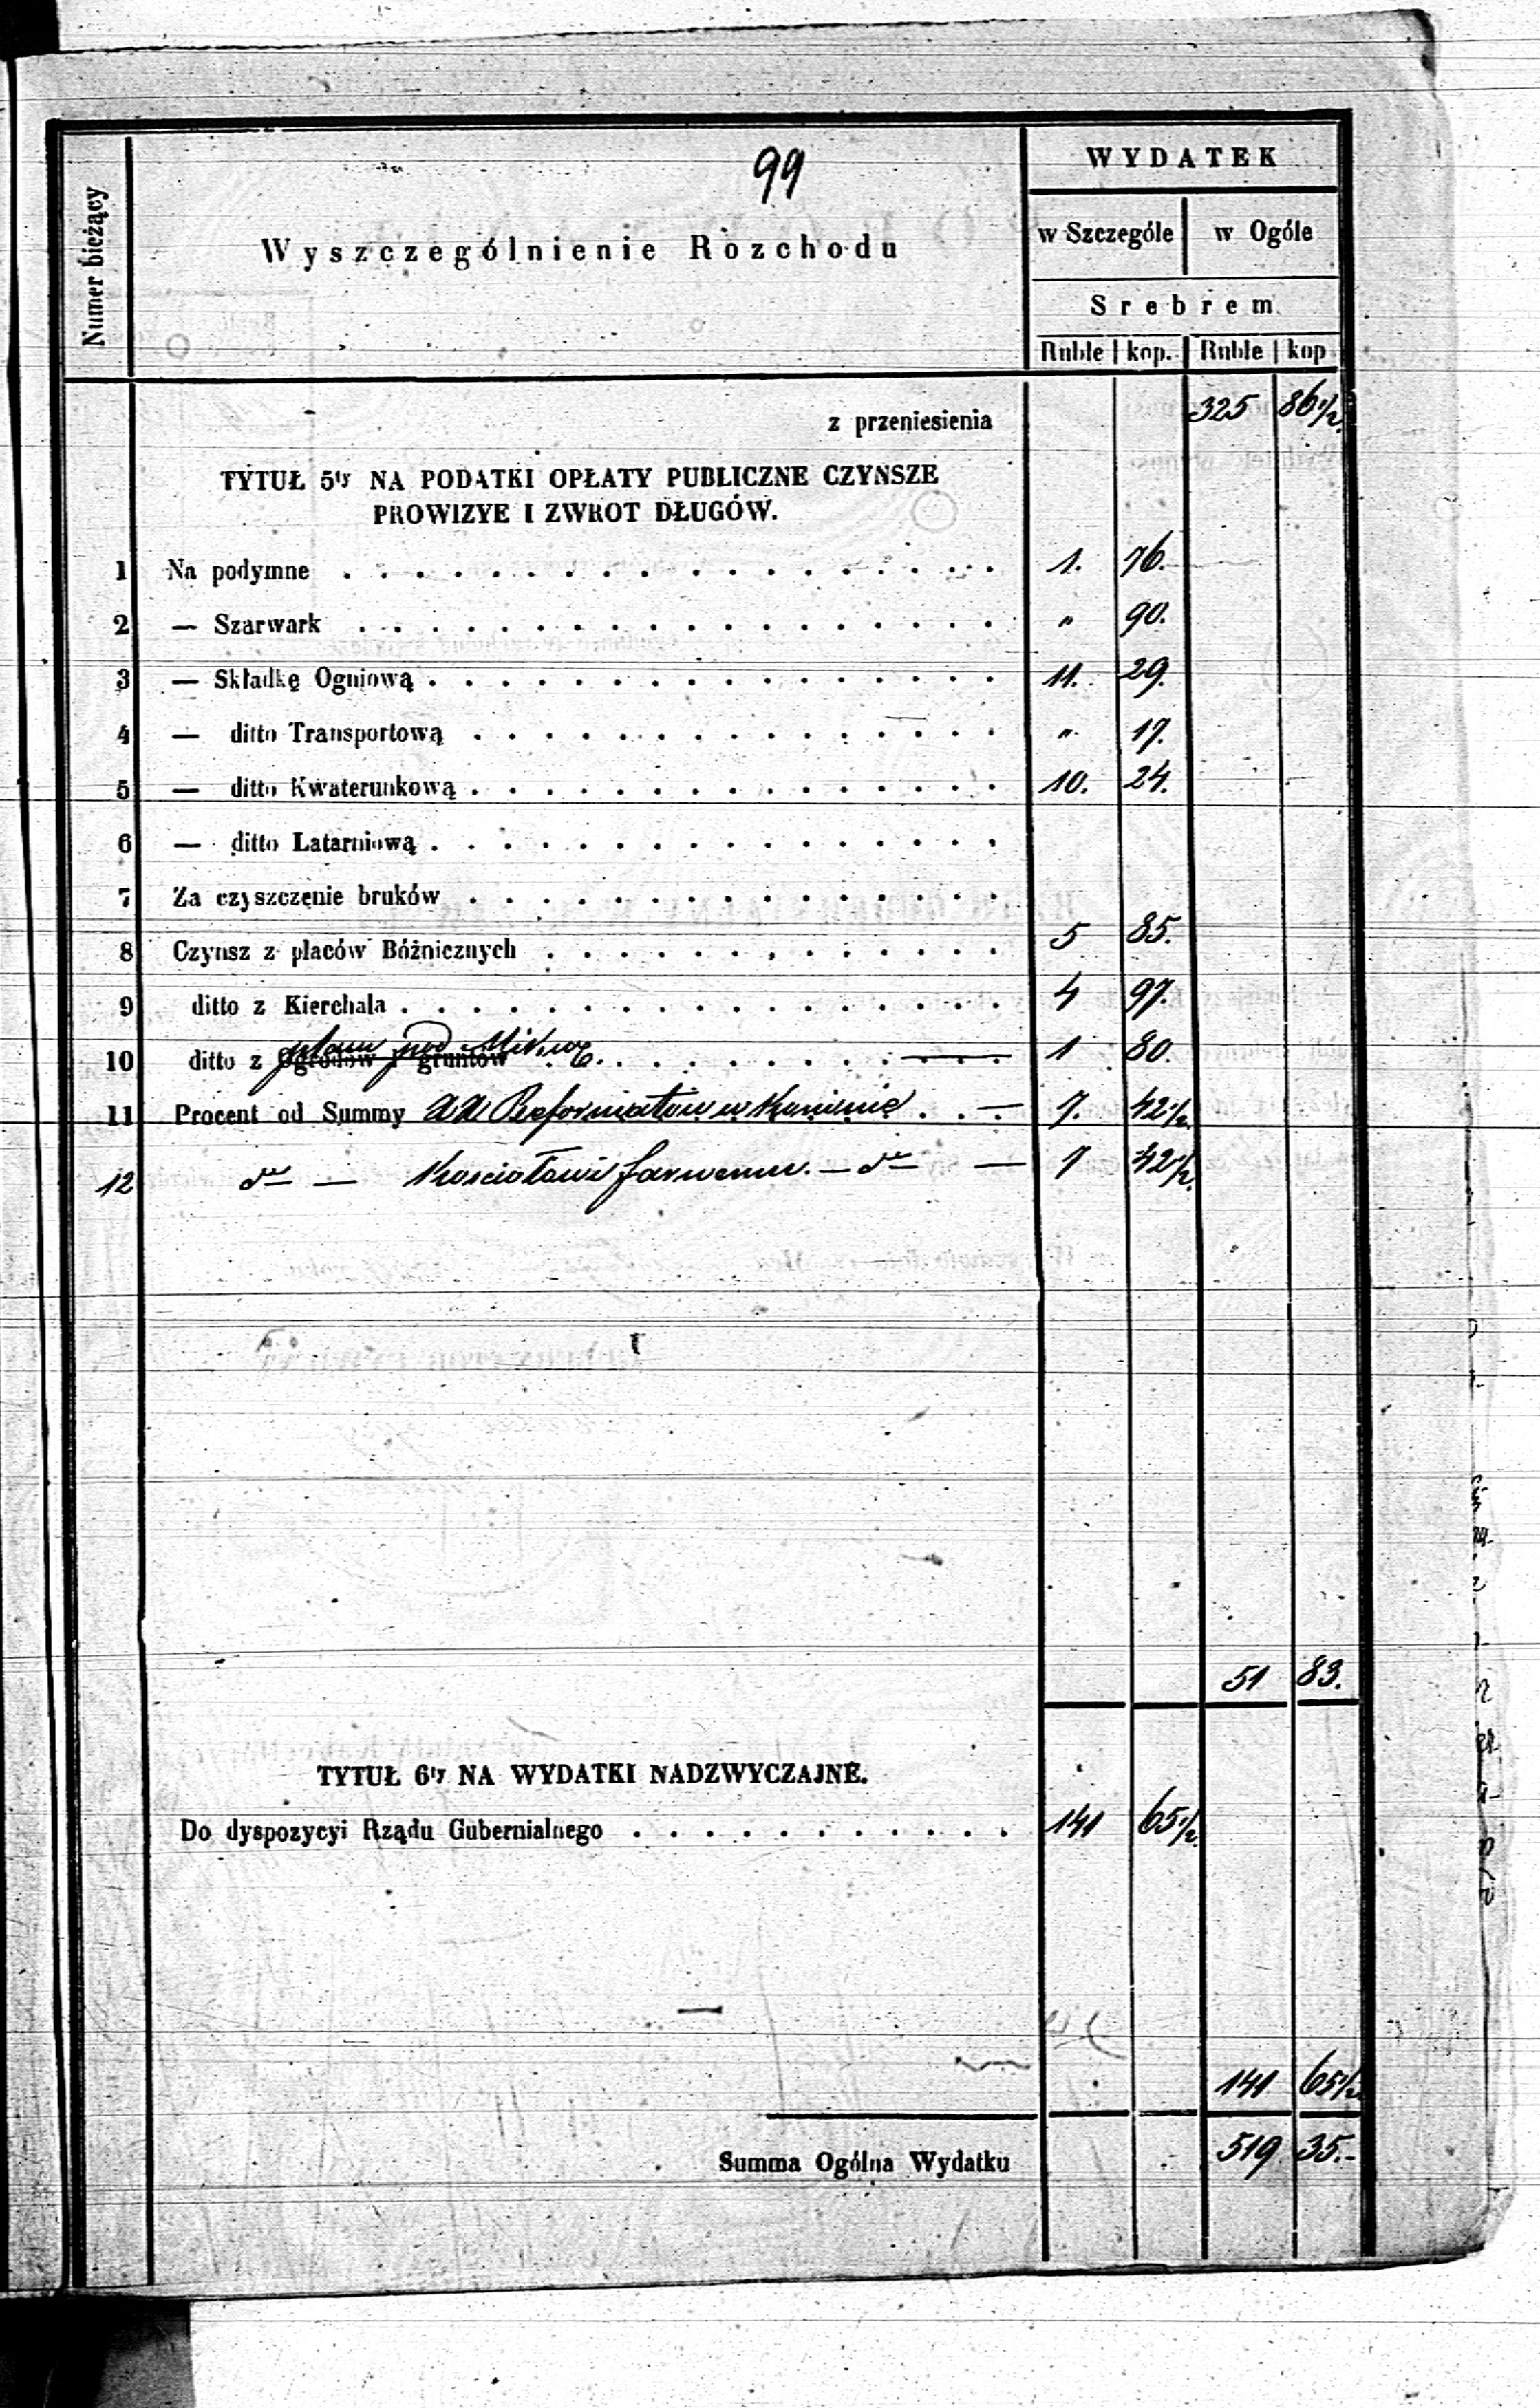 99
Numer bieżący
Wyszczególnienie Rozchodu
WYDATEK
w Szczególe w Ogóle
Srebrem
Ruble kop. Ruble kop
z przeniesienia 325 86 1/2.
TYTUŁ 5ty NA PODATKI OPŁATY PUBLICZNE CZYNSZE
PROWIZYE I ZWROT DŁUGÓW.
1 Na podymne 1. 76.
2 — Szarwark " 90.
3 — Składkę Ogniową 11. 29.
4 — ditto Transportową " 17.
5 — ditto Kwaterunkową 10. 24.
6 — ditto Latarniową
7 Za czyszczenie bruków
8 Czynsz z placów Bóżnicznych 5 85.
9 ditto z Kierchala 4 97.
10 ditto z Ogrodów i gruntów placu pod Mikwę 1 80.
11 Procent od Summy XX Reformatów w Koninie — 7. 42 1/2.
12 do — Kościołowi farnemu. — do — 7 42 1/2.
51 83.
TYTUŁ 6ty NA WYDATKI NADZWYCZAJNE.
Do dyspozycyi Rządu Gubernialnego 141 65 1/2.
141 65 1/2
Summa Ogólna Wydatku 519 35.-